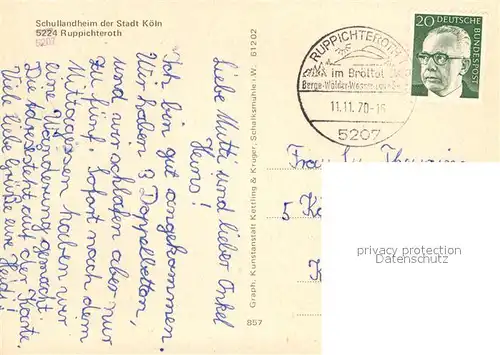 Schullandheim der Stadt Köln
5224 Ruppichteroth
5207
Liebe Mutti und lieber Onkel
Heins!
Ich bin gut angekommen.
Wir haben 3 Doppelbetten,
und wir schlafen aber nur
zu fünf. Sofort nach dem
Mittagessen haben wir
eine Wanderung gemacht.
Die Adresse steht auf der Karte.
Viele liebe Grüße eure Heidi!
Graph. Kunstanstalt Kettling & Krüger, Schalksmühle i. W. 61202
857
RUPPICHTEROTH
im Bröltal
11.11.70-16
5207
20 DEUTSCHE
BUNDESPOST
Frau
5 Kö
K
privacy protection
Datenschutz